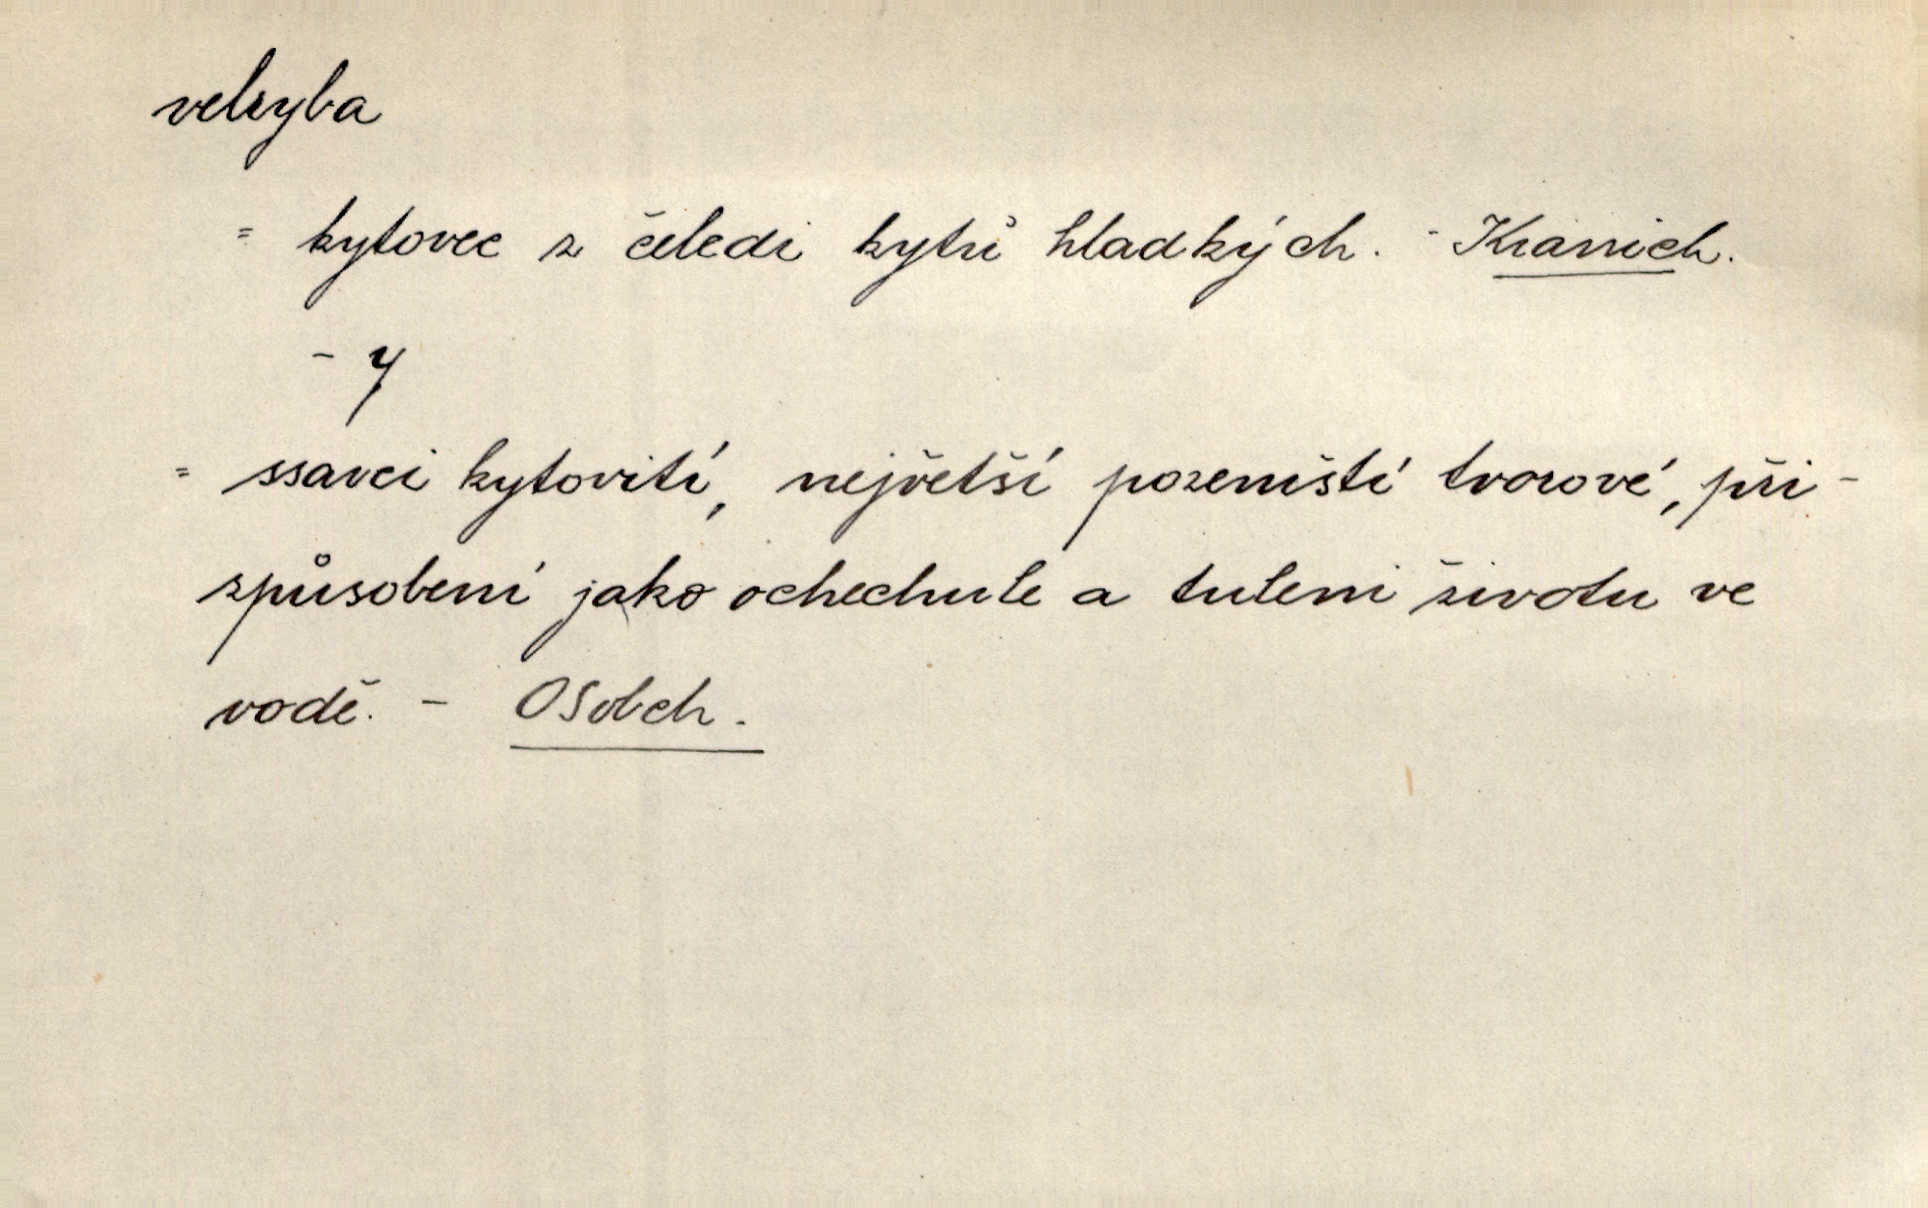 velryba
= kytovec z čeledi kytů hladkých. - Krannich.
- y
= ssavci kytovití, největší pozemští tvorové, při-
způsobení jako ochechule a tuleni životu ve
vodě. - OSobch.